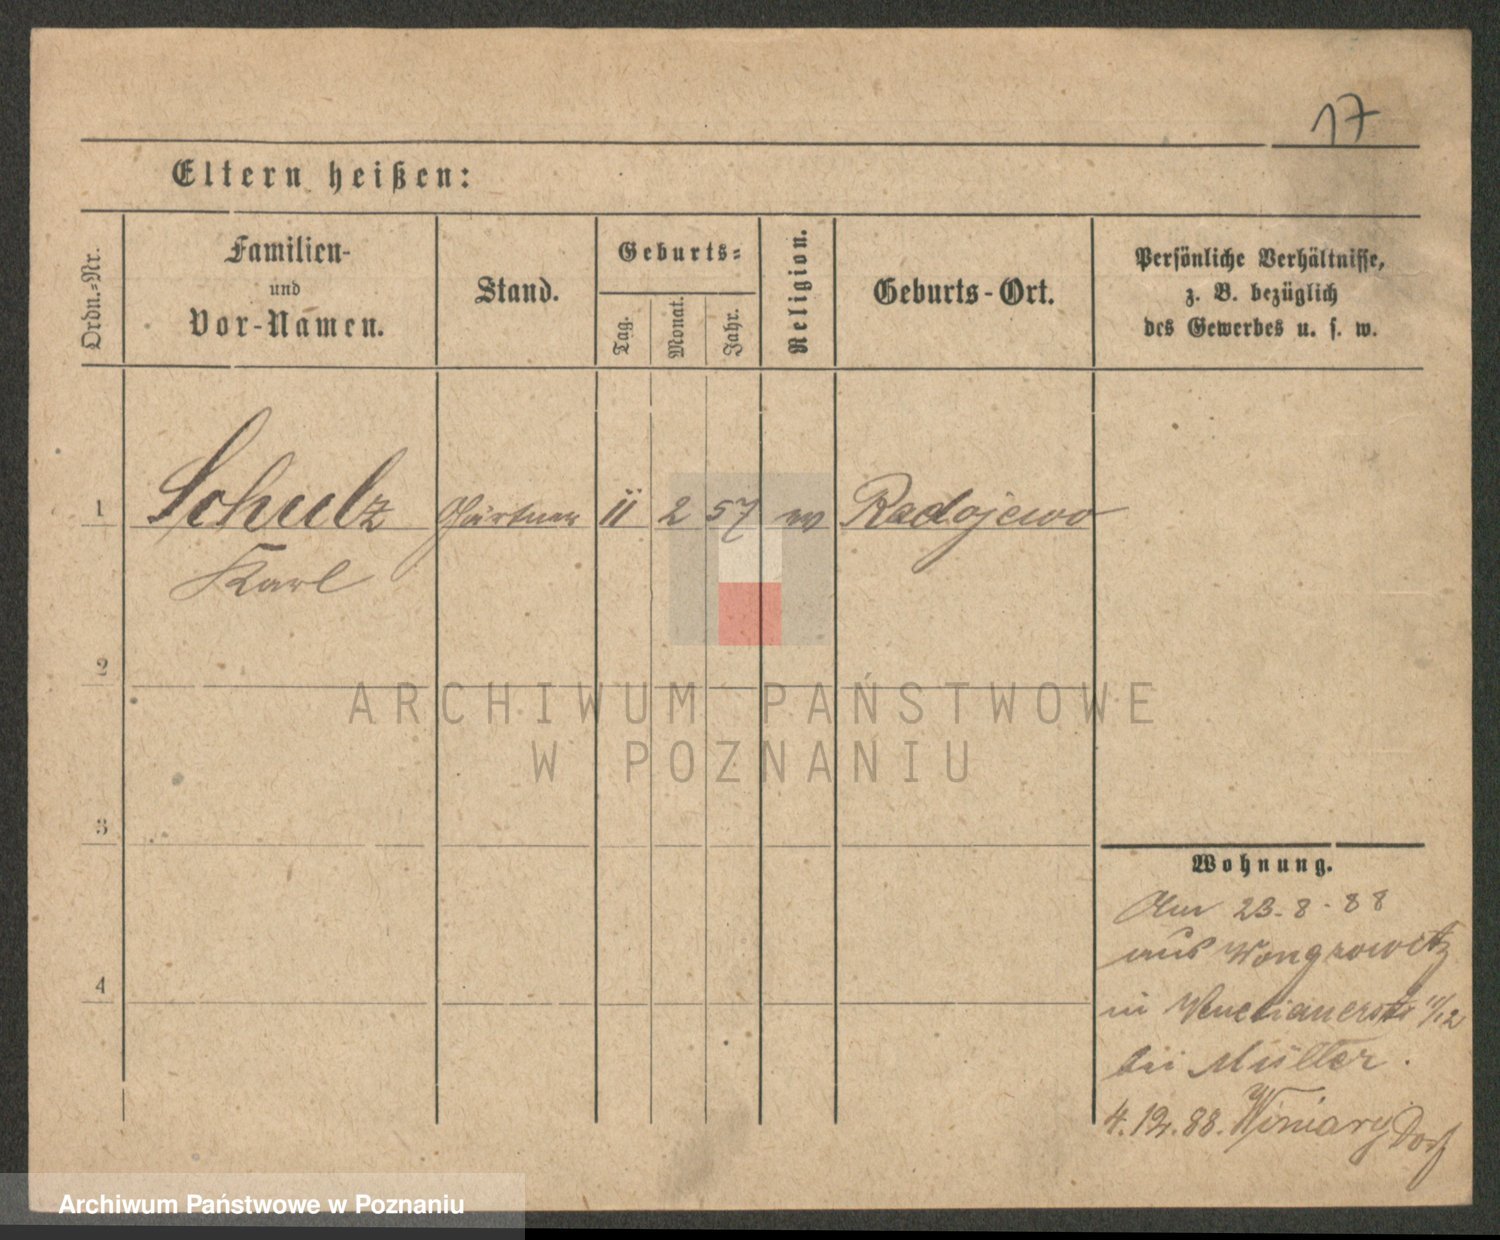 17
Eltern heißen:
Ordn.-Nr.
Familien-
und
Vor-Namen.
Stand.
Geburts-
Tag.
Monat.
Jahr.
Religion.
Geburts-Ort.
Persönliche Verhältnisse,
z. B. bezüglich
des Gewerbes u. s. w.
1 Schulz Gärtner 11 2 57 ev Radojewo
Karl
2
3
4
Wohnung.
23-8-88
aus Wongrowitz
in Venetianerstr 11/12
bei Müller.
4.12.88. Winiary Dorf
ARCHIWUM PAŃSTWOWE
W POZNANIU
Archiwum Państwowe w Poznaniu